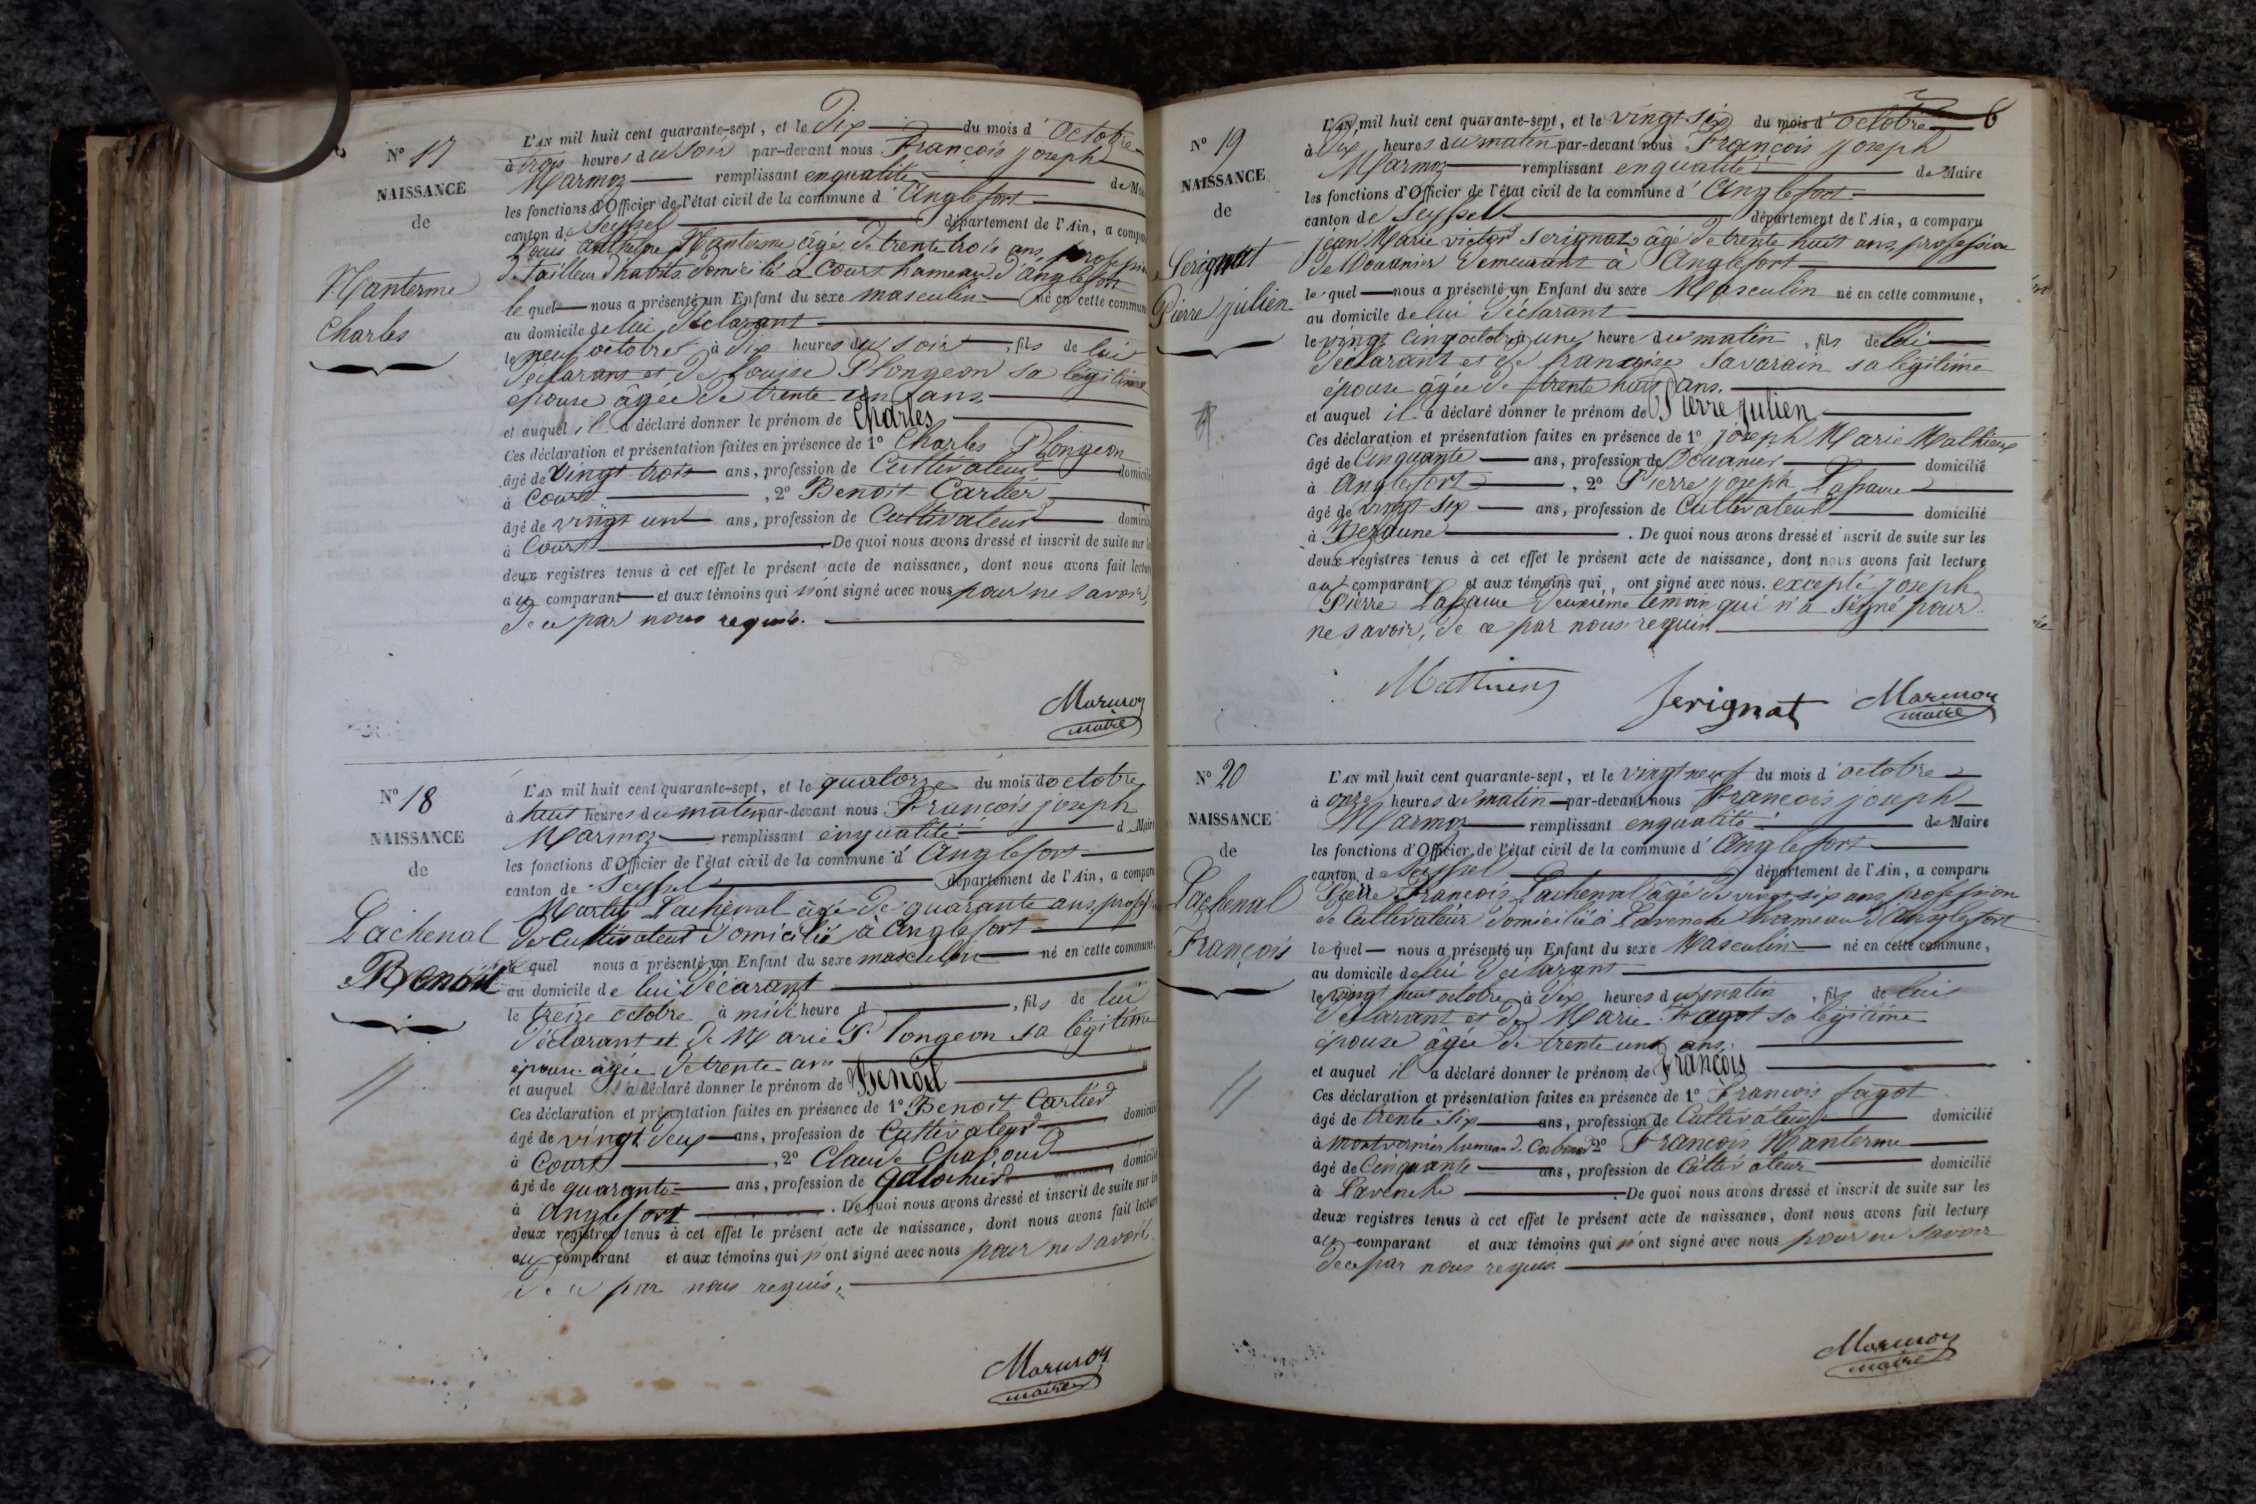 N° 17
NAISSANCE
de
Manterme
Charles
L'AN mil huit cent quarante-sept, et le Dix du mois d'Octobre
à trois heures du soir par-devant nous François joseph
Marmoz remplissant en qualité de
les fonctions d'Officier de l'état civil de la commune d'Anglefort
canton de Seyssel département de l'Ain, a
Louis Manterme âgé de trente trois ans
de tailleur d'habits domicilié à Court hameau d'Anglefort
le quel nous a présenté un Enfant du sexe masculin né en cette commune
au domicile de lui Déclarant
le neuf octobre à dix heures du soir, fils de lui
déclarant et de Plongeon sa légitime
épouse âgée de trente un ans
et auquel il a déclaré donner le prénom de Charles
Ces déclaration et présentation faites en présence de 1° Charles Plongeon
âgé de Vingt trois ans, profession de Cultivateur
à Court, 2° Benoit Cartier
âgé de vingt un ans, profession de Cultivateur
à Court. De quoi nous avons dressé et inscrit de suite sur
deux registres tenus à cet effet le présent acte de naissance, dont nous avons fait
au comparant et aux témoins qui n'ont signé avec nous pour ne savoir,
de ce par nous requis.
Marmoz
maire
N° 18
NAISSANCE
de
Lachenal
Benoit
L'AN mil huit cent quarante-sept, et le quatorze du mois d'octobre
à huit heures du matin par-devant nous François joseph
Marmoz remplissant en qualité d
les fonctions d'Officier de l'état civil de la commune d'Anglefort
canton de Seyssel département de l'Ain, a
Lachenal âgé de quarante ans
de Cultivateur Domicilié à Anglefort
le quel nous a présenté un Enfant du sexe masculin né en cette commune,
au domicile de lui décarant
le treize octobre à midi heure d, fils de lui
déclarant et de Marie Plongeon sa légitime
épouse âgée de trente ans
et auquel il a déclaré donner le prénom de Benoit
Ces déclaration et présentation faites en présence de 1° Benoit Cartier
âgé de vingt deux ans, profession de Cultivateur
à Court, 2° Claude
âgé de quarante ans, profession de
à Anglefort. De quoi nous avons dressé et inscrit de suite sur
deux registres tenus à cet effet le présent acte de naissance, dont nous avons fait
au comparant et aux témoins qui n'ont signé avec nous pour ne savoir,
de ce par nous requis.
Marmoz
maire
6
N° 19
NAISSANCE
de
Serignat
Pierre julien
L'AN mil huit cent quarante-sept, et le vingt six du mois d'octobre
à Dix heures du matin par-devant nous François joseph
Marmoz remplissant en qualité de Maire
les fonctions d'Officier de l'état civil de la commune d'Anglefort
canton de Seyssel département de l'Ain, a comparu
jean Marie victor Serignat âgé de trente huit ans profession
de Douanier demeurant à Anglefort
le quel nous a présenté un Enfant du sexe Masculin né en cette commune,
au domicile de lui Déclarant
le vingt cinq octobre à une heure du matin, fils de lui
déclarant et de françoise Savarain sa légitime
épouse âgée de trente huit ans.
et auquel il a déclaré donner le prénom de Pierre julien
Ces déclaration et présentation faites en présence de 1° joseph Marie Mathieux
âgé de Cinquante ans, profession de Douanier domicilié
à Anglefort, 2° Pierre joseph
âgé de vingt six ans, profession de Cultivateur domicilié
à. De quoi nous avons dressé et inscrit de suite sur les
deux registres tenus à cet effet le présent acte de naissance, dont nous avons fait lecture
au comparant et aux témoins qui ont signé avec nous. excepté joseph
Pierre deuxième témoin qui n'a signé pour
ne savoir, de ce par nous requis
Serignat
Marmoz
maire
N° 20
NAISSANCE
de
Lachenal
François
L'AN mil huit cent quarante-sept, et le vingt neuf du mois d'octobre
à onze heures du matin par-devant nous François joseph
Marmoz remplissant en qualité de Maire
les fonctions d'Officier de l'état civil de la commune d'Anglefort
canton de Seyssel département de l'Ain, a comparu
Pierre François Lachenal âgé de vingt six ans profession
de Cultivateur domicilié à hameau d'Anglefort
le quel nous a présenté un Enfant du sexe Masculin né en cette commune,
au domicile de lui déclarant
le vingt huit octobre à dix heures du matin, fils de lui
déclarant et de Marie Fagot sa légitime
épouse âgée de trente un ans.
et auquel il a déclaré donner le prénom de François
Ces déclaration et présentation faites en présence de 1° François fagot
âgé de trente six ans, profession de Cultivateur domicilié
à hameau 2° François Manterme
âgé de Cinquante ans, profession de Cultivateur domicilié
à. De quoi nous avons dressé et inscrit de suite sur les
deux registres tenus à cet effet le présent acte de naissance, dont nous avons fait lecture
au comparant et aux témoins qui n'ont signé avec nous pour ne savoir
de ce par nous requis
Marmoz
maire